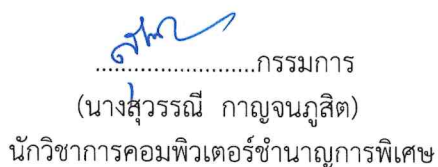 ........................กรรมการ
(นางสุวรรณี กาญจนภูสิต)
นักวิชาการคอมพิวเตอร์ชำนาญการพิเศษ